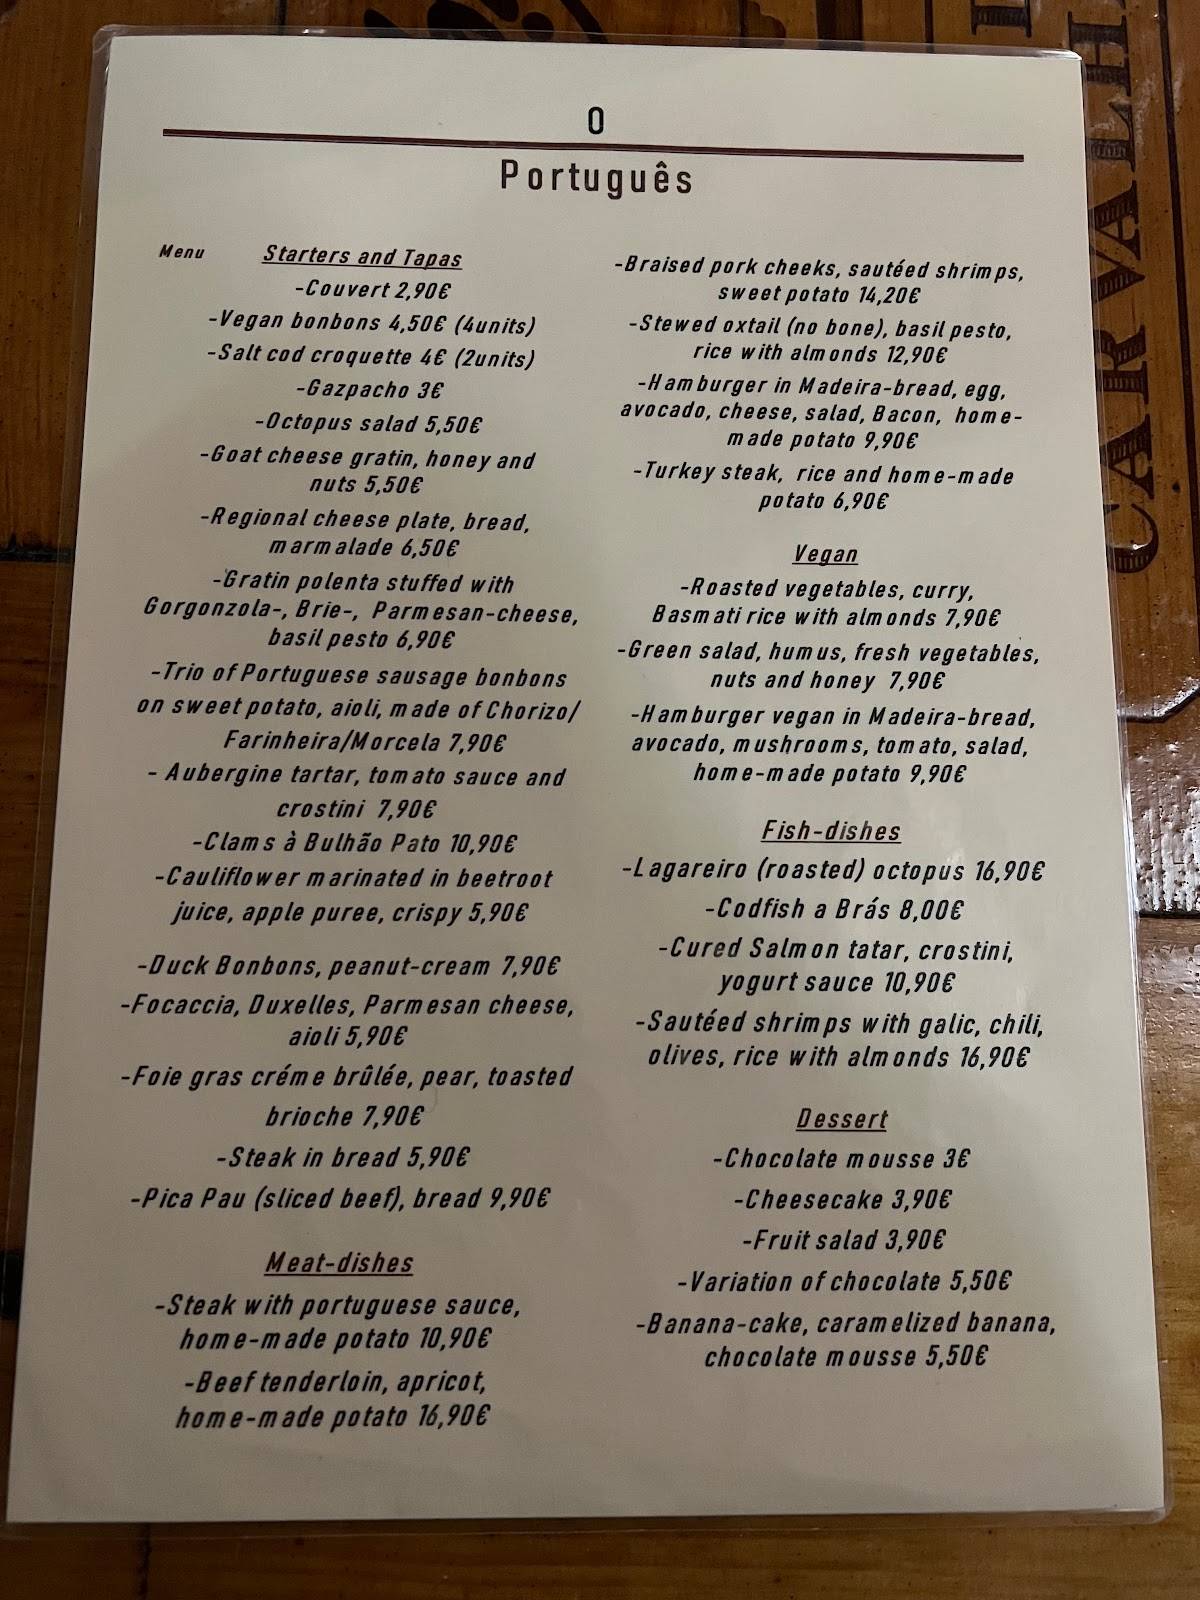 O
Português
Menu
Starters and Tapas
-Couvert 2,90€
-Vegan bonbons 4,50€ (4units)
-Salt cod croquette 4€ (2units)
-Gazpacho 3€
-Octopus salad 5,50€
-Goat cheese gratin, honey and
nuts 5,50€
-Regional cheese plate, bread,
marmalade 6,50€
-Gratin polenta stuffed with
Gorgonzola-, Brie-, Parmesan-cheese,
basil pesto 6,90€
-Trio of Portuguese sausage bonbons
on sweet potato, aioli, made of Chorizo/
Farinheira/Morcela 7,90€
- Aubergine tartar, tomato sauce and
crostini 7,90€
-Clams à Bulhão Pato 10,90€
-Cauliflower marinated in beetroot
juice, apple puree, crispy 5,90€
-Duck Bonbons, peanut-cream 7,90€
-Focaccia, Duxelles, Parmesan cheese,
aioli 5,90€
-Foie gras créme brûlée, pear, toasted
brioche 7,90€
-Steak in bread 5,90€
-Pica Pau (sliced beef), bread 9,90€
Meat-dishes
-Steak with portuguese sauce,
home-made potato 10,90€
-Beef tenderloin, apricot,
home-made potato 16,90€
-Braised pork cheeks, sautéed shrimps,
sweet potato 14,20€
-Stewed oxtail (no bone), basil pesto,
rice with almonds 12,90€
-Hamburger in Madeira-bread, egg,
avocado, cheese, salad, Bacon, home-
made potato 9,90€
-Turkey steak, rice and home-made
potato 6,90€
Vegan
-Roasted vegetables, curry,
Basmati rice with almonds 7,90€
-Green salad, humus, fresh vegetables,
nuts and honey 7,90€
-Hamburger vegan in Madeira-bread,
avocado, mushrooms, tomato, salad,
home-made potato 9,90€
Fish-dishes
-Lagareiro (roasted) octopus 16,90€
-Codfish a Brás 8,00€
-Cured Salmon tatar, crostini,
yogurt sauce 10,90€
-Sautéed shrimps with galic, chili,
olives, rice with almonds 16,90€
Dessert
-Chocolate mousse 3€
-Cheesecake 3,90€
-Fruit salad 3,90€
-Variation of chocolate 5,50€
-Banana-cake, caramelized banana,
chocolate mousse 5,50€
CARVALH